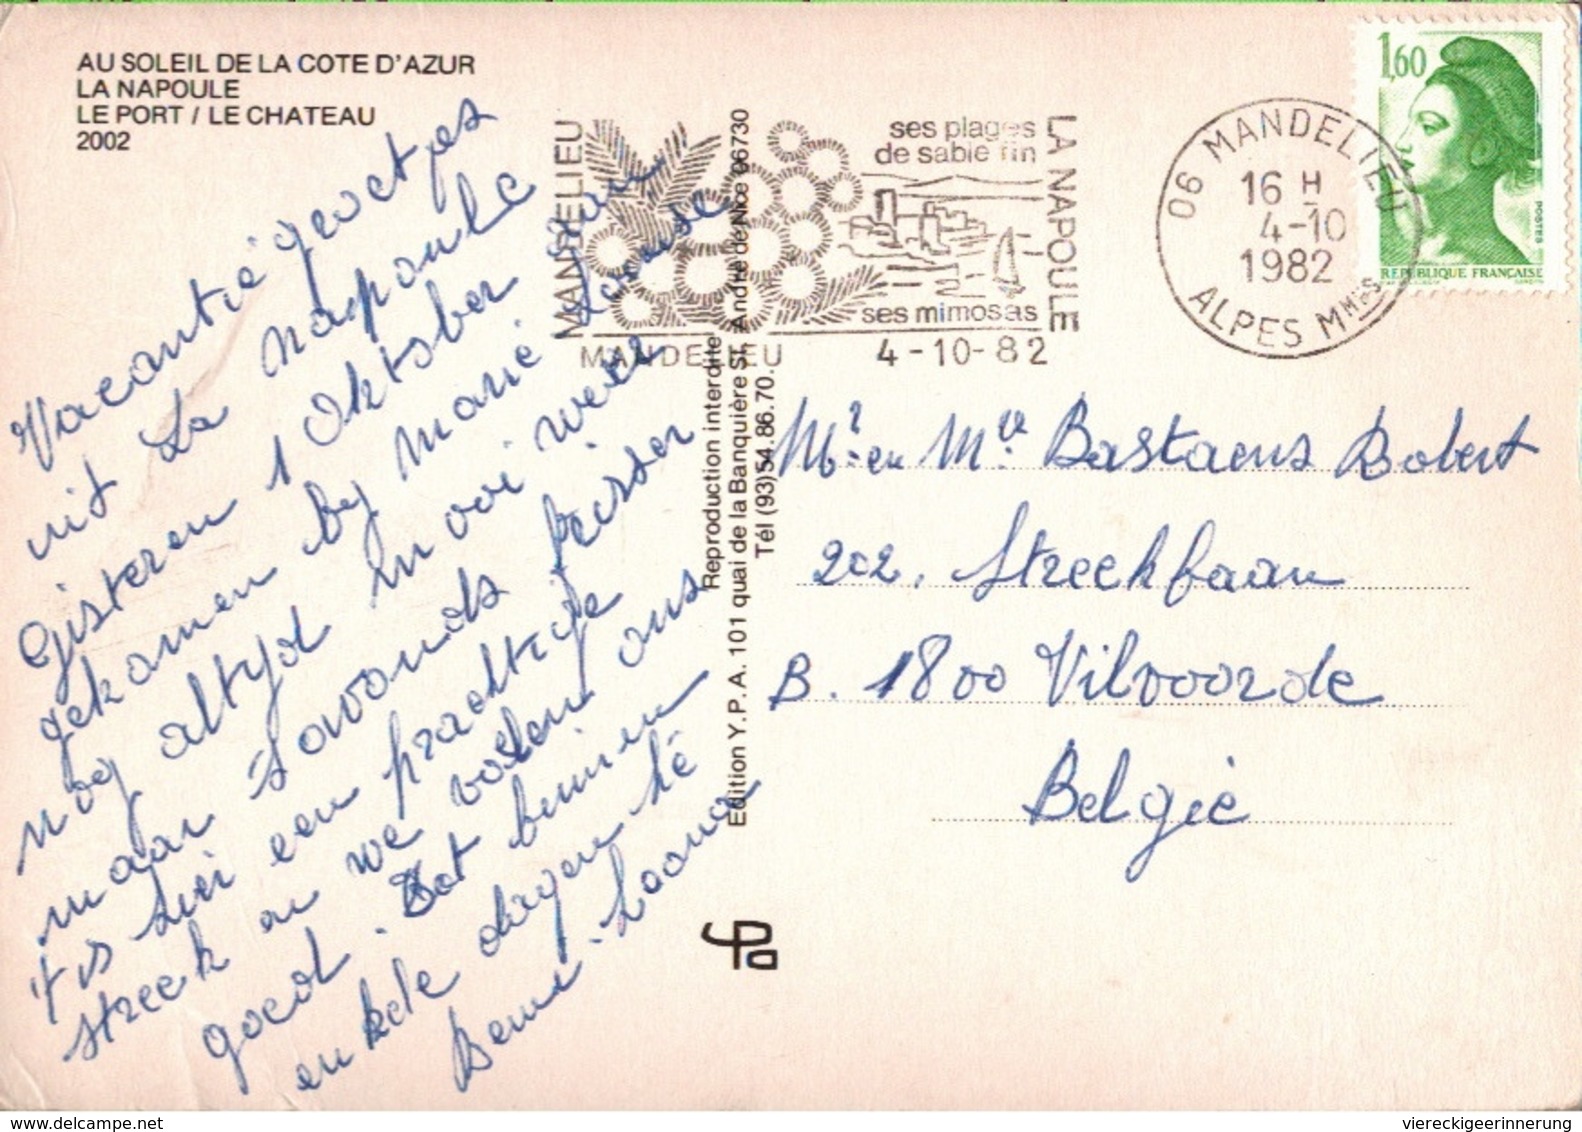 AU SOLEIL DE LA COTE D'AZUR
LA NAPOULE
LE PORT / LE CHATEAU
2002
Vacantie groetjes
uit La Napoule
Gisteren 1 Oktober aan
gekomen by Marie Louise
nog altyd mooi weer
maar savonds frisser
't is hier een prachtige
streek en we voelen ons
goed. Tot binnen
enkele dagen
Edition Y.P.A. 101 quai de la Banquière St. André de Nice 06730
Reproduction interdite
Tél (93) 54.86.70.
MANDELIEU
ses plages
de sable fin
ses mimosas
LA NAPOULE
MANDELIEU 4-10-82
06 MANDELIEU
16 H
4-10
1982
ALPES MMES
1,60
POSTES
REPUBLIQUE FRANÇAISE
Mr. en Mve Bastaens Robert
202, Streekbaan
B. 1800 Vilvoorde
België
viereckigeerinnerung